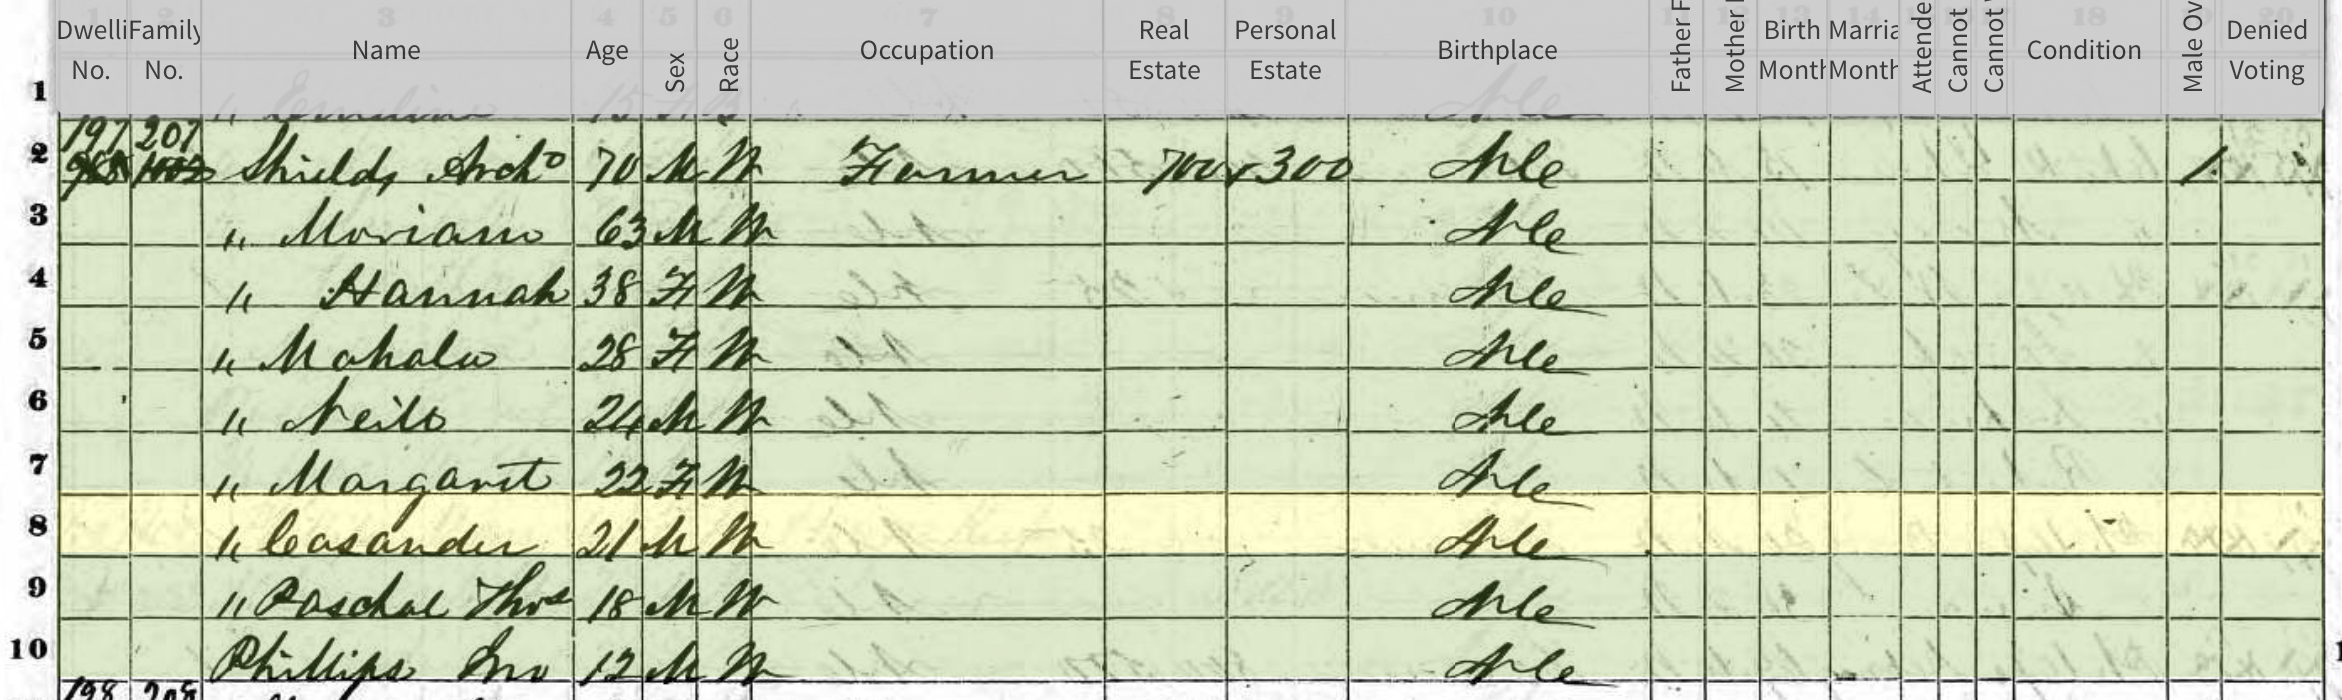 Dwelli No. Family No. Name Age Sex Race Occupation Real Estate Personal Estate Birthplace Father F Mother Birth Month Marria Month Attende Cannot Cannot Condition Male Ov Denied Voting
1 " Emeline 15
197 207
2 Shields Archo 70 M W Farmer 700 300 1
3 " Moriann 63 M W
4 " Hannah 38 F W
5 " Mahala 28 F W
6 " Neill 24 M W
7 " Margaret 22 F W
8 " Casander 21 M W
9 " Paschal Thos 18 M W
10 Phillips Jno 12 M W
198 208